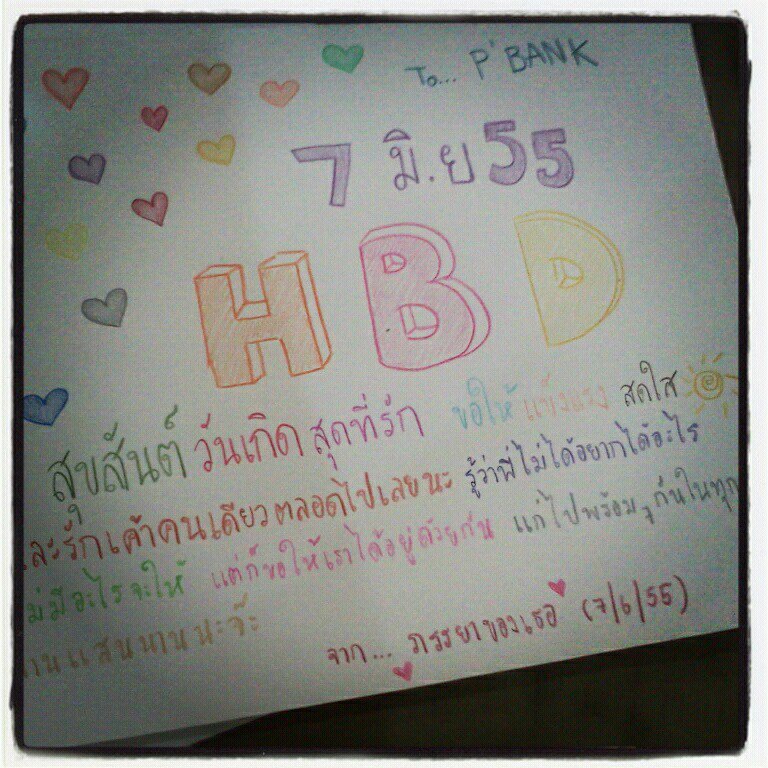 To... P'BANK
7 มิ.ย 55
HBD
สุขสันต์วันเกิดสุดที่รัก ขอให้แข็งแรง สดใส
และรักเค้าคนเดียวตลอดไปเลยนะ รู้ว่าพี่ไม่ได้อยากได้อะไร
ไม่มีอะไรจะให้ แต่ก็ขอให้เราได้อยู่ด้วยกัน แก่ไปพร้อมๆกันในทุก
นานแสนนานนะจ๊ะ
จาก... ภรรยาของเธอ (7/6/55)